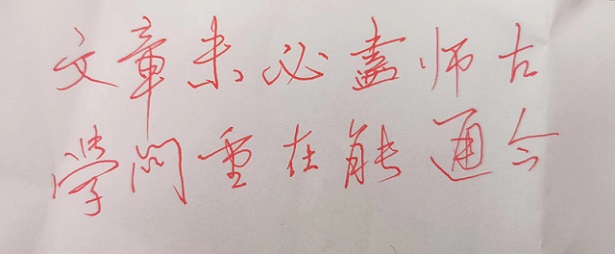 文章未必盡师古
學问重在能通今